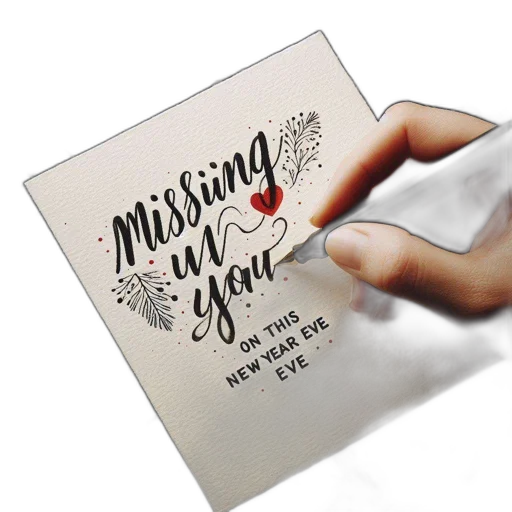 Missiing
uv
you
ON THIS
NEW YEAR EVE
EVE